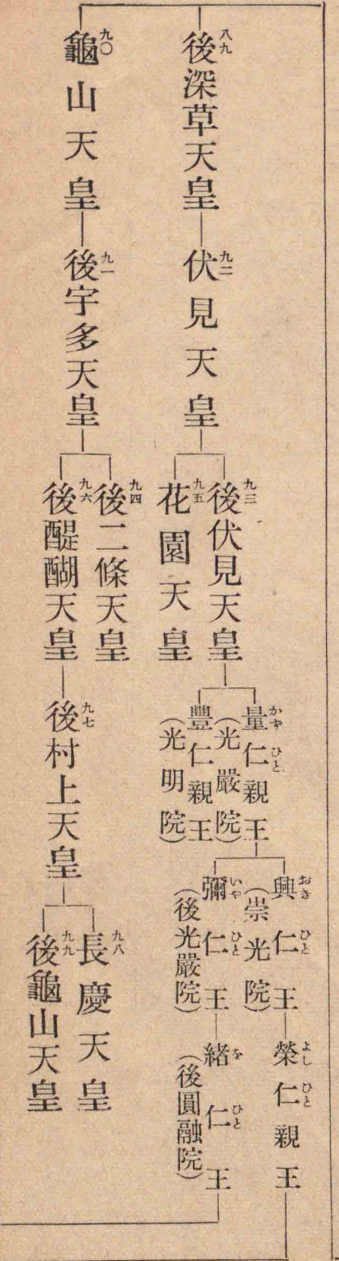 八九
後深草天皇
九二
伏見天皇
九三
後伏見天皇
かずひと
量仁親王
(光嚴院)
おきひと
興仁王
(崇光院)
よしひと
榮仁親王
いやひと
彌仁王
(後光嚴院)
をひと
緒仁王
(後圓融院)
豐仁親王
(光明院)
九五
花園天皇
九〇
龜山天皇
九一
後宇多天皇
九四
後二條天皇
九六
後醍醐天皇
九七
後村上天皇
九八
長慶天皇
九九
後龜山天皇